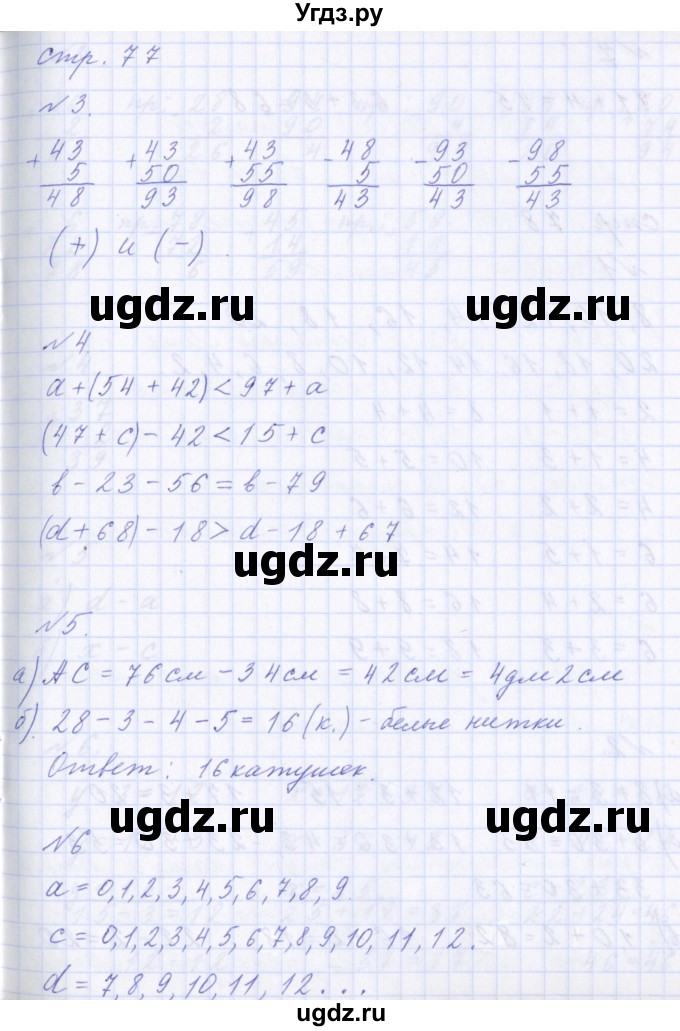 Угдз.ру
стр. 77
№3.
+43 +43 +43 -48 -93 -98
5 50 55 5 50 55
48 93 98 43 43 43
(+) и (-).
ugdz.ru ugdz.ru
№4.
a+(54+42)<97+a
(47+c)-42<15+c
в-23-56=в-79
(d+68)-18>d-18+67
ugdz.ru
№5.
а) AC=76см-34см=42см=4дм2см
б). 28-3-4-5=16(к.)-белые нитки.
Ответ: 16 катушек.
ugdz.ru ugdz.ru
№6
a=0,1,2,3,4,5,6,7,8,9.
c=0,1,2,3,4,5,6,7,8,9,10,11,12.
d=7,8,9,10,11,12...
ugdz.ru